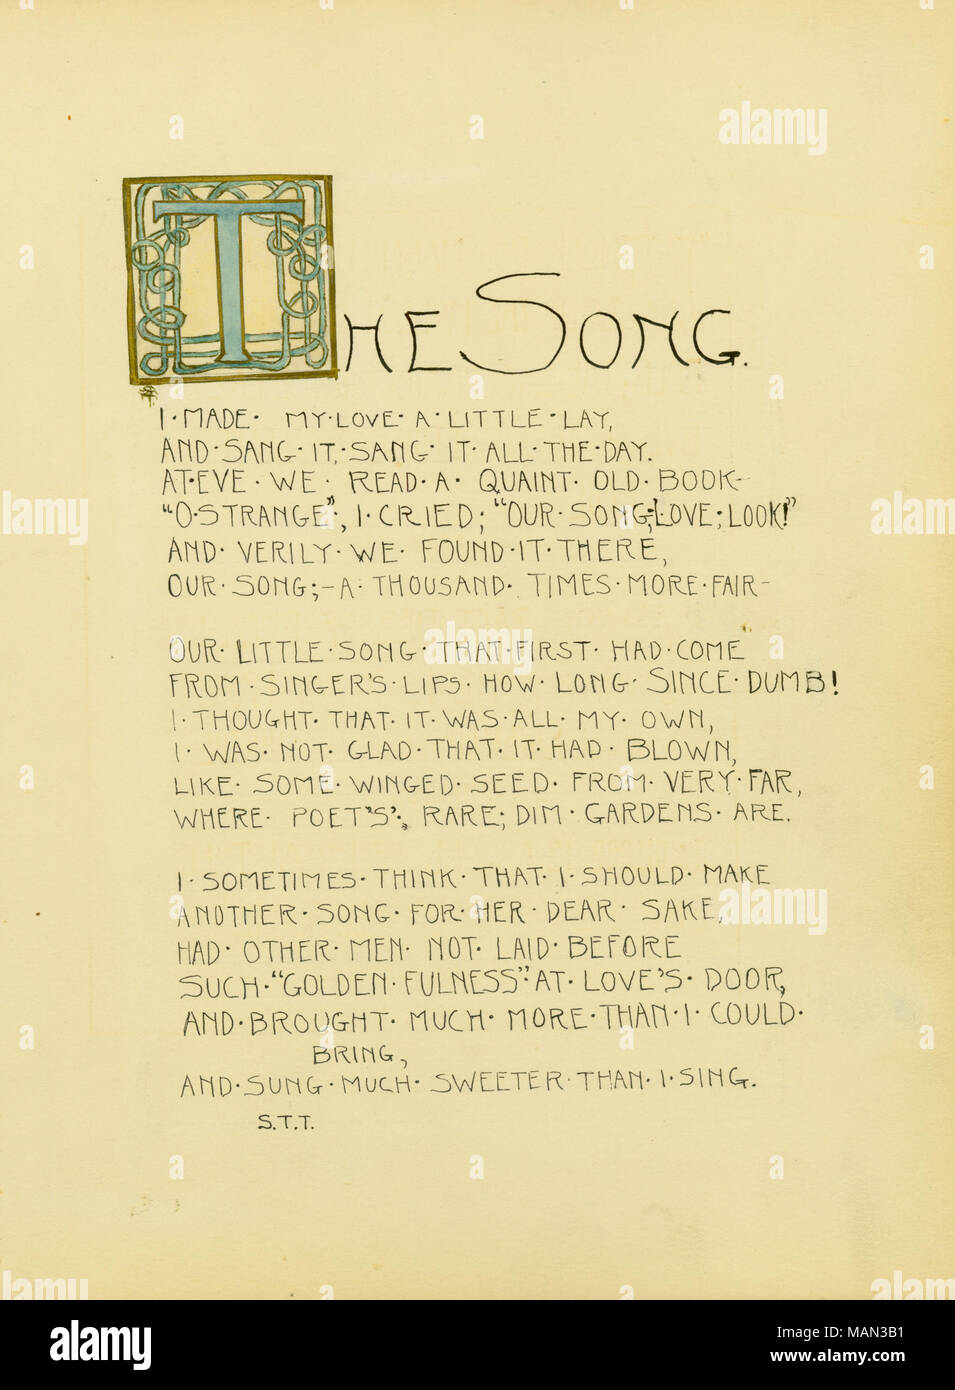 THE SONG.
I · MADE · MY · LOVE · A · LITTLE · LAY,
AND · SANG · IT, · SANG · IT · ALL · THE · DAY.
AT · EVE · WE · READ · A · QUAINT · OLD · BOOK-
"O · STRANGE", I · CRIED; "OUR · SONG; LOVE; LOOK!"
AND · VERILY · WE · FOUND · IT · THERE,
OUR · SONG; - A · THOUSAND · TIMES · MORE · FAIR -
OUR · LITTLE · SONG · THAT · FIRST · HAD · COME
FROM · SINGER'S · LIPS · HOW · LONG · SINCE · DUMB!
I · THOUGHT · THAT · IT · WAS · ALL · MY · OWN,
I · WAS · NOT · GLAD · THAT · IT · HAD · BLOWN,
LIKE · SOME · WINGED · SEED · FROM · VERY · FAR,
WHERE · POET'S', RARE; DIM · GARDENS · ARE.
I · SOMETIMES · THINK · THAT · I · SHOULD · MAKE
ANOTHER · SONG · FOR · HER · DEAR · SAKE,
HAD · OTHER · MEN · NOT · LAID · BEFORE
SUCH · "GOLDEN · FULNESS" · AT · LOVE'S · DOOR,
AND · BROUGHT · MUCH · MORE · THAN · I · COULD ·
BRING,
AND · SUNG · MUCH · SWEETER · THAN · I · SING.
S.T.T.
alamy
Image ID: MAN3B1
www.alamy.com